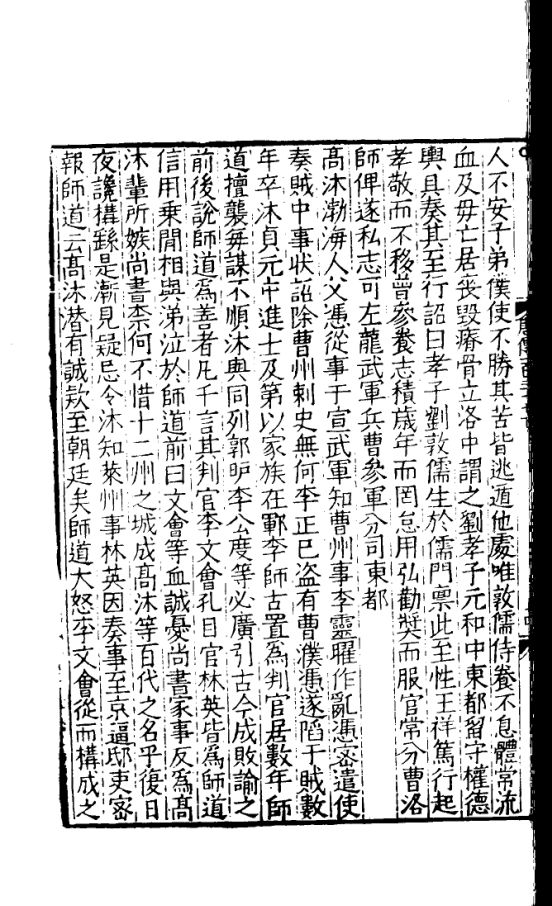 人不安子弟僕使不勝其苦皆逃遁他處唯敦儒侍養不息體常流
血及毋亡居丧毀瘠骨立洛中謂之劉孝子元和中東都留守權德
輿具奏其至行詔曰孝子劉敦儒生於儒門禀此至性王祥篤行起
孝敬而不移曾參養志積歲年而罔怠用弘勸奬而服官常分曹洛
師俾遂私志可左龍武軍兵曹參軍分司東都
高沐渤海人父憑從事于宣武軍知曹州事李靈曜作亂憑密遣使
奏賊中事状詔除曹州刺史無何李正已盗有曹濮憑遂䧟于賊數
年卒沐貞元中進士及第以家族在鄆李師古置為判官居數年師
道擅襲每謀不順沐與同列郭昈李公度等必廣引古今成敗諭之
前後說師道為善者凡千言其判官李文會孔目官林英皆為師道
信用乗閒相與涕泣於師道前曰文會等血誠憂尚書家事反為高
沐輩所嫉尚書柰何不惜十二州之城成高沐等百代之名乎復日
夜讒構繇是漸見疑忌令沐知萊州事林英因奏事至京逼邸吏密
報師道云高沐潜有誠欵至朝廷矣師道大怒李文會從而構成之